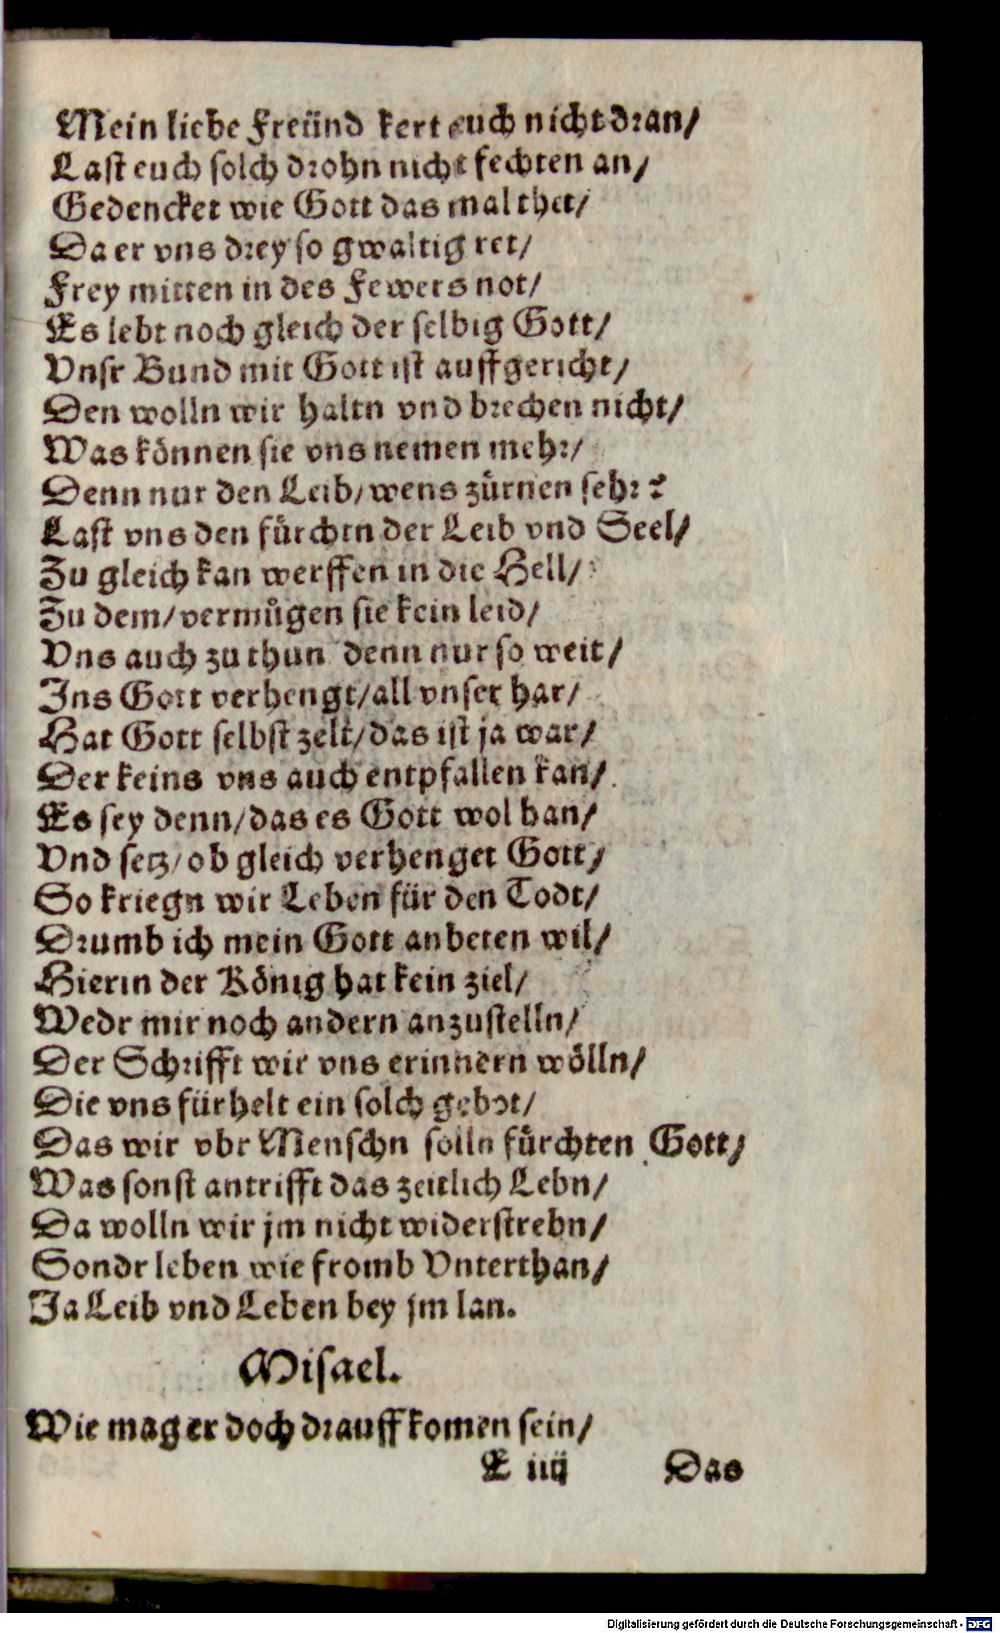 Mein liebe Freünd kert euch nicht dran/
Last euch solch drohn nicht fechten an/
Gedencket wie Gott das mal thet/
Da er vns drey so gwaltig ret/
Frey mitten in des Fewers not/
Es lebt noch gleich der selbig Gott/
Vnsr Bund mit Gott ist auffgericht/
Den wolln wir haltn vnd brechen nicht/
Was können sie vns nemen mehr/
Denn nur den Leib/wens zürnen sehr?
Last vns den fürchtn der Leib vnd Seel/
Zu gleich kan werffen in die Hell/
Zu dem/vermügen sie kein leid/
Vns auch zu thun denn nur so weit/
Ins Gott verhengt/all vnser har/
Hat Gott selbst zelt/das ist ja war/
Der keins vns auch entpfallen kan/
Es sey denn/das es Gott wol han/
Vnd setz/ob gleich verhenget Gott/
So kriegn wir Leben für den Todt/
Drumb ich mein Gott anbeten wil/
Hierin der König hat kein ziel/
Wedr mir noch andern anzustelln/
Der Schrifft wir vns erinnern wölln/
Die vns fürhelt ein solch gebot/
Das wir vbr Menschn solln fürchten Gott/
Was sonst antrifft das zeitlich Lebn/
Da wolln wir jm nicht widerstrebn/
Sondr leben wie fromb Vnterthan/
Ja Leib vnd Leben bey jm lan.
Misael.
Wie mag er doch drauff komen sein/
E iiij Das
Digitalisierung gefördert durch die Deutsche Forschungsgemeinschaft - DFG